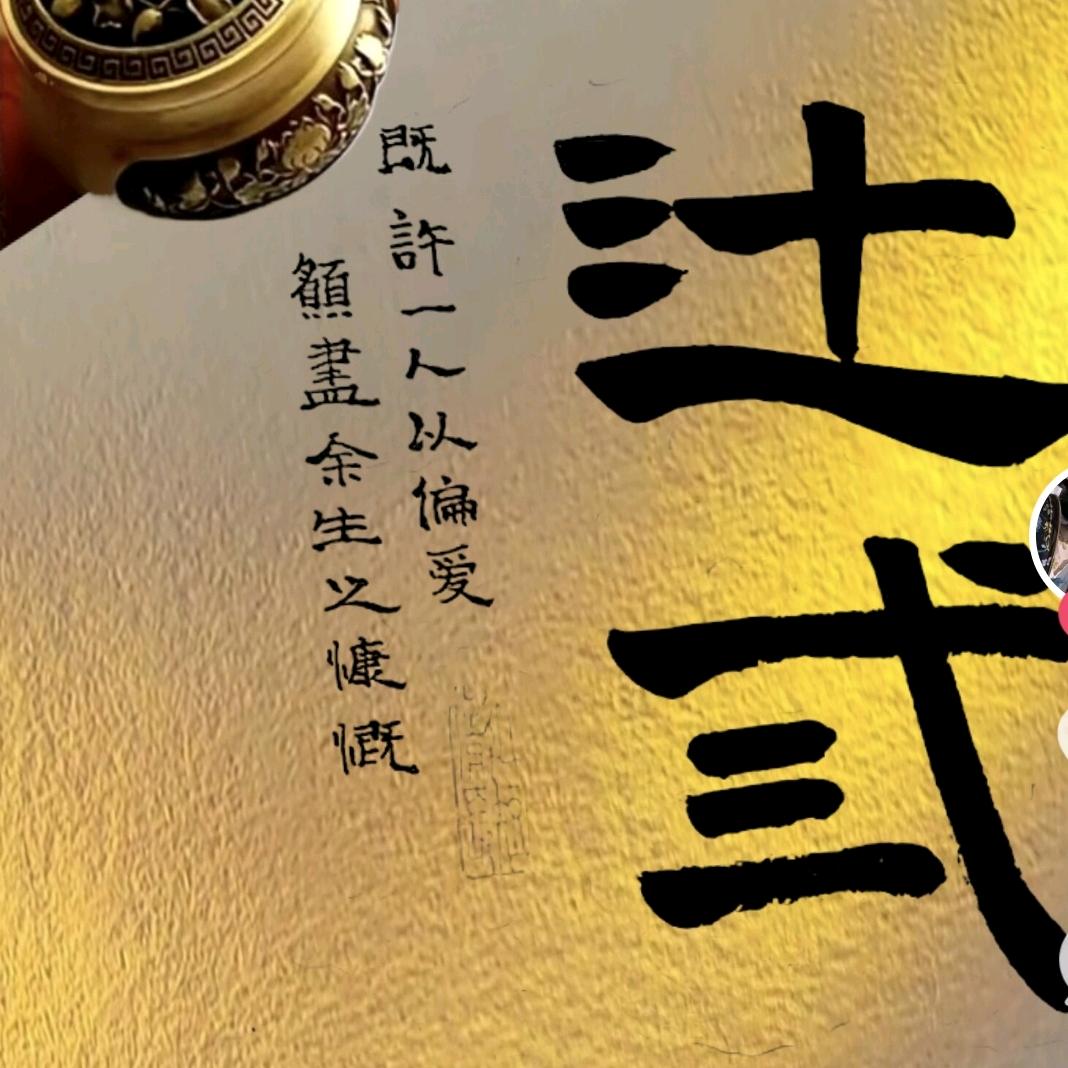 辻弎
既許一人以偏爱
願盡余生之慷慨